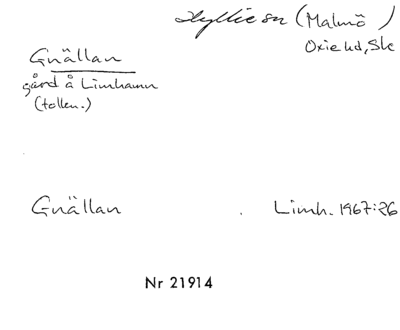 Hyllie sn (Malmö)
Oxie hd, Sk
Gnällan
gård å Limhamn
(tollen.)
Gnällan
Limh. 1967:26
Nr 21914